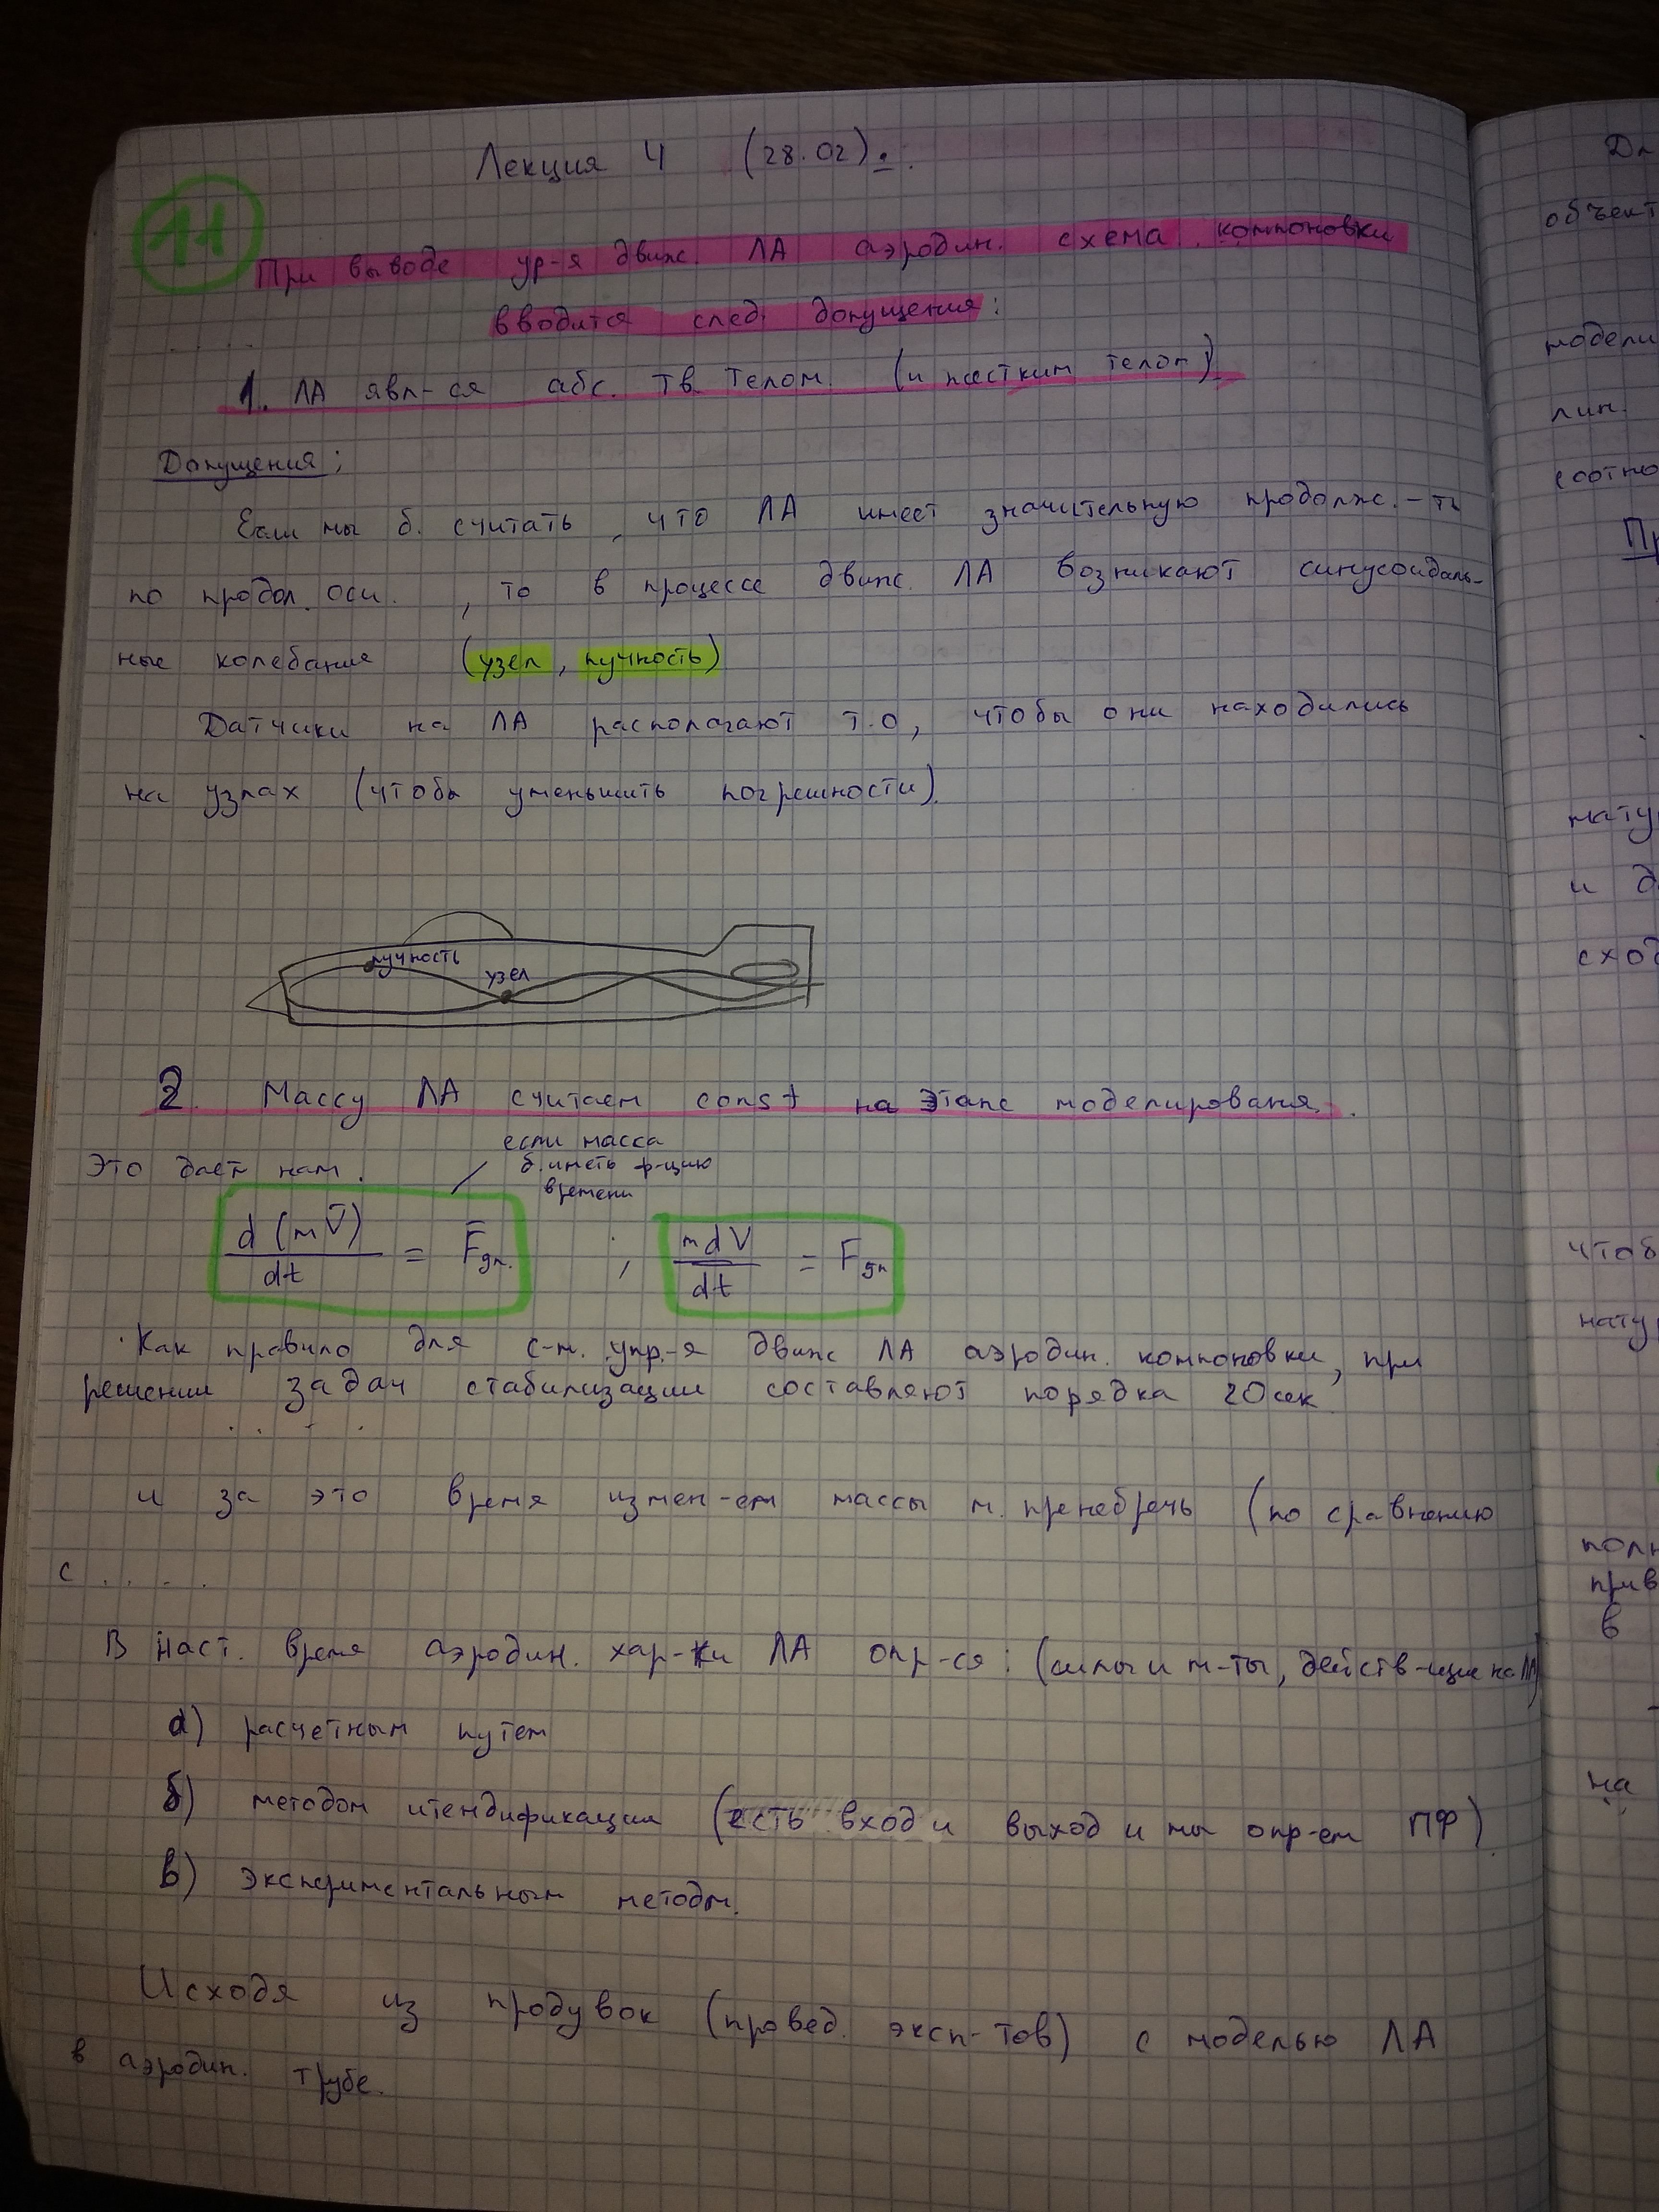 Лекция 4 (28.02):
11
При выводе ур-я движ. ЛА аэродин. схема компоновки
вводится след. допущения:
1. ЛА явл-ся абс. тв. телом. (и жестким телом)
Допущения:
Если мы б. считать, что ЛА имеет значительную продолж.-ть
по продол. оси, то в процессе движ. ЛА возникают синусоидаль-
ные колебания (узел, пучность)
Датчики на ЛА располагают т.о, чтобы они находились
на узлах (чтобы уменьшить погрешности).
пучность
узел
2. Массу ЛА считаем const на этапе моделирования.
если масса
б. иметь ф-цию
времени
Это дает нам.
d(mV̄)/dt = F̄дл. ; mdV/dt = Fдл
Как правило для с-м. упр-я движ ЛА аэродин. компоновки, при
решении задач стабилизации составляют порядка 20 сек
.....
и за это время измен-ем массы м. пренебречь (по сравнению
с .....
В наст. время аэродин. хар-ки ЛА опр-ся: (силы и м-ты, действ-щие на ЛА)
а) расчетным путем
б) методом итендификации (есть вход и выход и мы опр-ем ПФ)
в) экспериментальным методм.
Исходя из продувок (провед. эксп-тов) с моделью ЛА
в аэродин. трубе.
объект
модели
лин.
соотно
Пр
нату
и д
сход
чтоб
нату
полн
прив
в
на